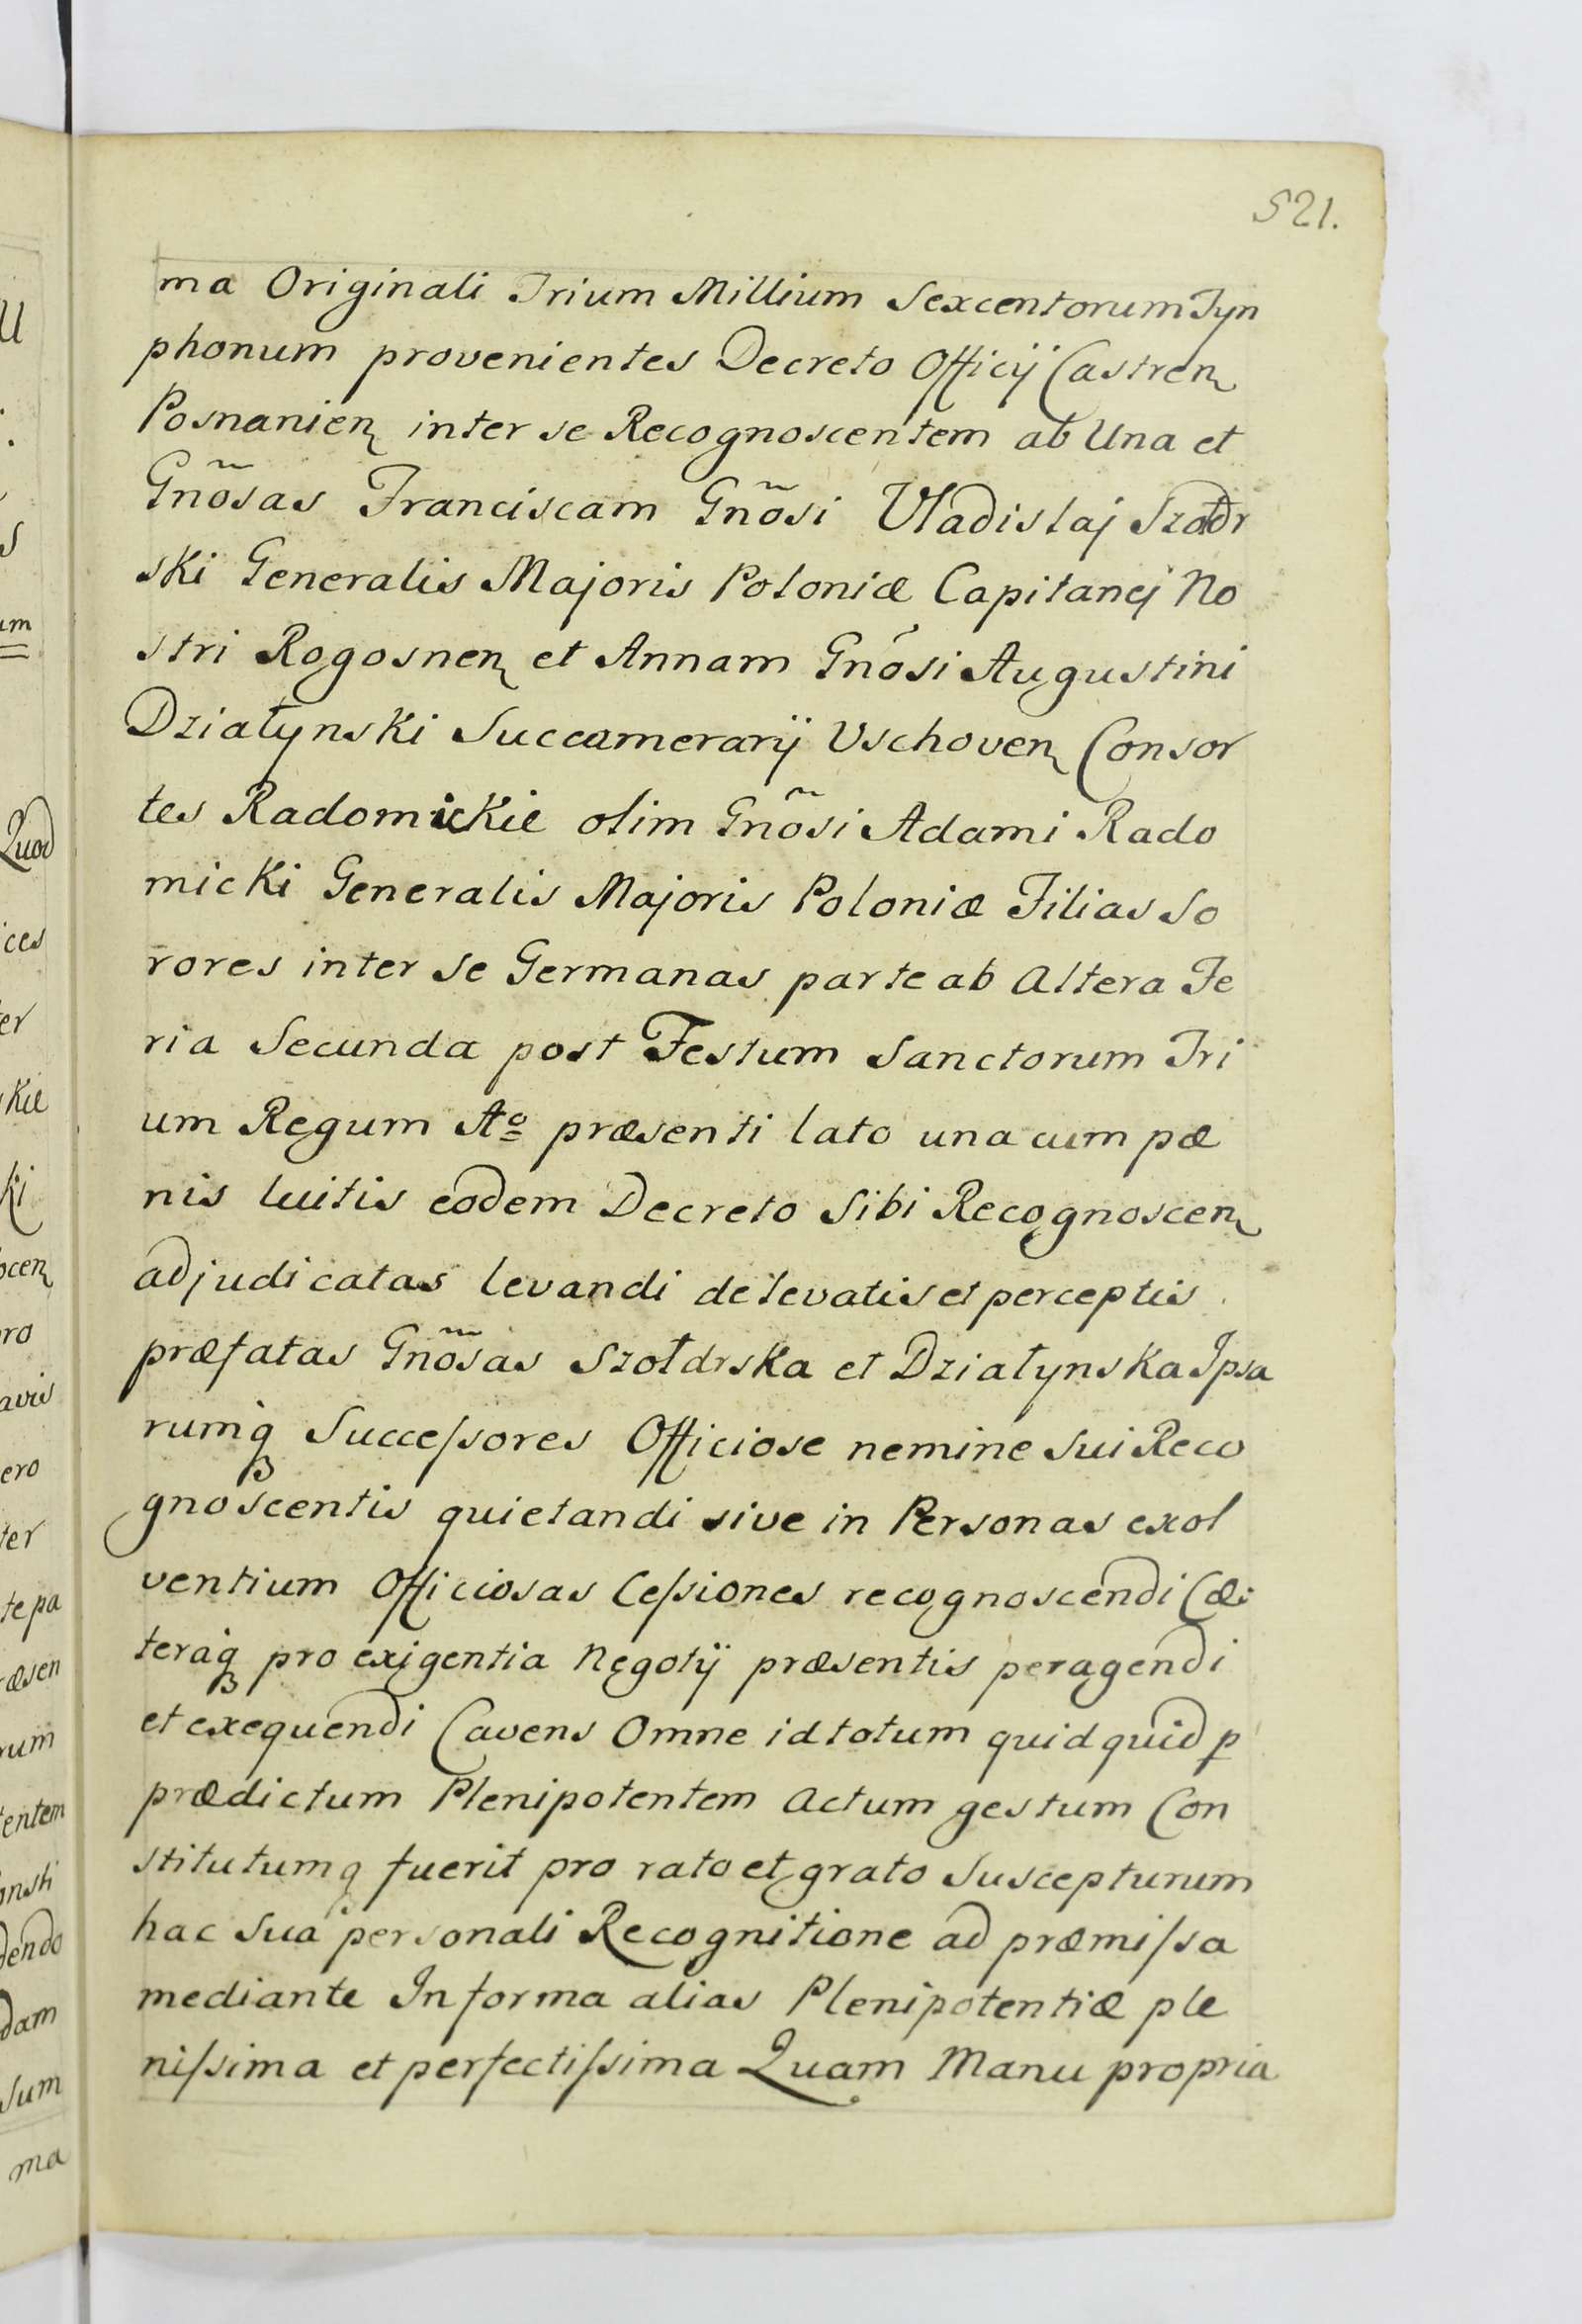 521.
ma Originali Trium Millium Sexcentorum Tyn
phonum provenientes Decreto Officij Castren
Posnanien inter se Recognoscentem ab Una et
Gnõsas Franciscam Gnõsi Vladislaj Szołdr
ski Generalis Majoris Poloniæ Capitanej No
stri Rogosnen et Annam Gnósi Augustini
Działynski Succamerarij Vschoven Consor
tes Radomickie olim Gnõsi Adami Rado
micki Generalis Majoris Poloniæ Filias So
rores inter se Germanas parte ab Altera Fe
ria Secunda post Festum Sanctorum Tri
um Regum Aº præsenti lato una cum pæ
nis luitis eodem Decreto Sibi Recognoscen
adjudicatas levandi de levatis et perceptis
præfatas Gnõsas Szołdrska et Działynska Ipsa
rumq Successores Officiose nemine Sui Reco
gnoscentis quietandi sive in Personas exol
ventium Officiosas Cessiones recognoscendi Cæ
teraq pro exigentia Negotij præsentis peragendi
et exequendi Cavens Omne id totum quidquid p
prædictum Plenipotentem Actum gestum Con
stitutumq fuerit pro rato et grato Suscepturum
hac Sua personali Recognitione ad præmissa
mediante In forma alias Plenipotentiæ ple
nissima et perfectissima Quam Manu propria